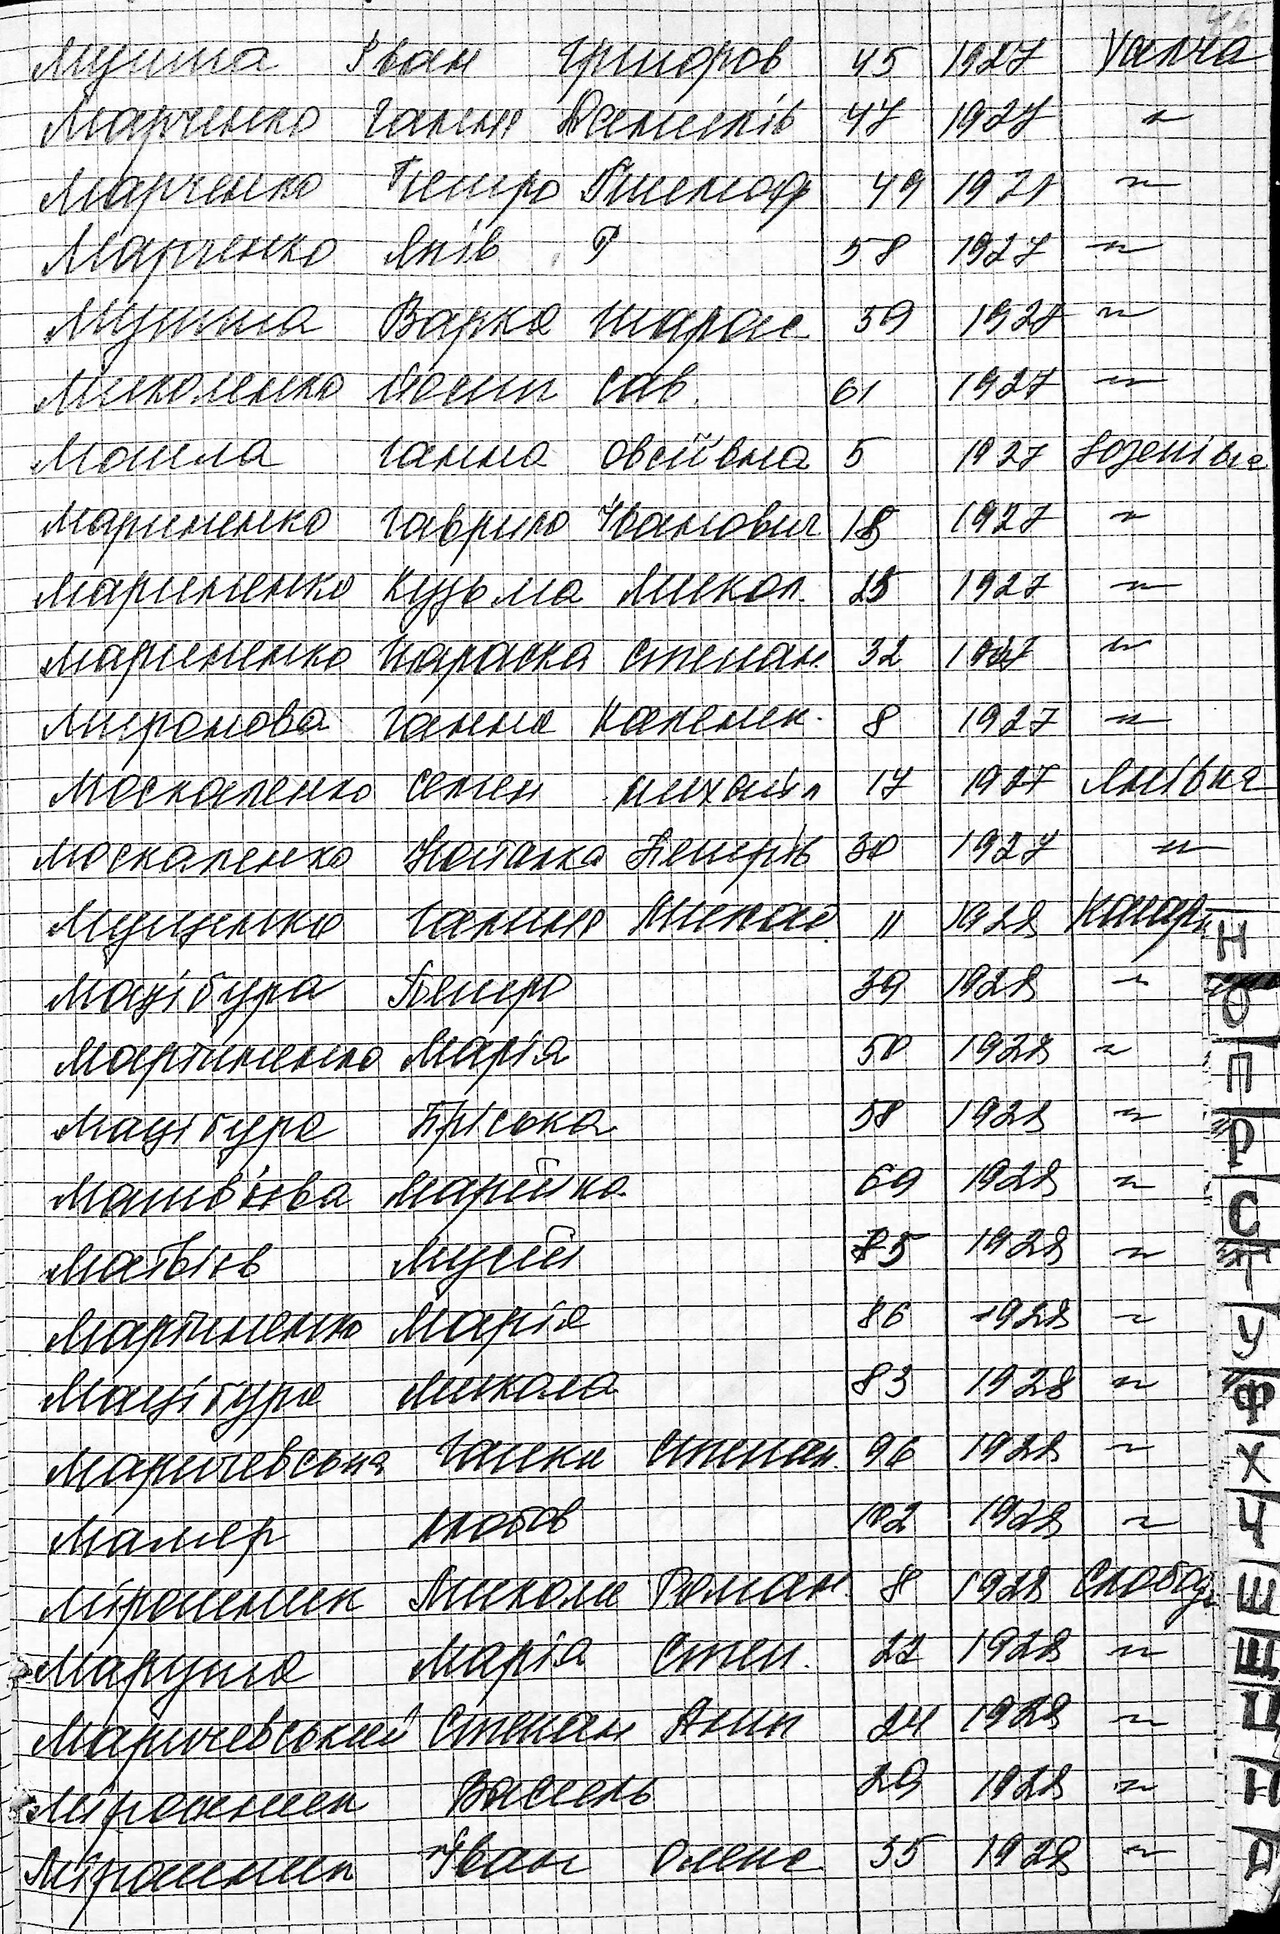 Мушта Іван Григоров 45 1927 Уалча
Марченко Ганна 47 1927 "
Марченко Петро 49 1927 "
Марченко Яків Р 58 1927 "
Мушта Варка Тарас 59 1927 "
Миколенко Йосип Сав. 61 1927 "
Моша Ганна Овсіївна 5 1927
Мариненко Гаврило Іванович 18 1927 "
Мариненко Кузьма Микол. 25 1927 "
Мариненко Параска Степан. 32 1927 "
Миронова Ганна Калення. 8 1927 "
Москаленко Семен Михайл 17 1927 Янівка
Москаленко Наталка Петрів 30 1927 "
Галина 11 1928
Мацібура Петро 39 1928 "
Мартиненко Марія 50 1928 "
Мацібура Пріська 58 1928 "
Матв'єва Марійка 69 1928 "
Матвієв Мусій 75 1928 "
Мартиненко Марія 86 1928 "
Мацібура Микола 83 1928 "
Маричевська Ганна Степан. 96 1928 "
Малер Любов 102 1928 "
Мірошник Микола Роман. 8 1928 Слобод
Маруша Марія Степ. 22 1928 "
Маричевський Степан Ант 24 1928 "
Мірошник Василь 29 1928 "
Мірошник Іван Олекс 35 1928 "
Н
О
П
Р
С
Т
У
Ф
Х
Ч
Ш
Щ
Ц